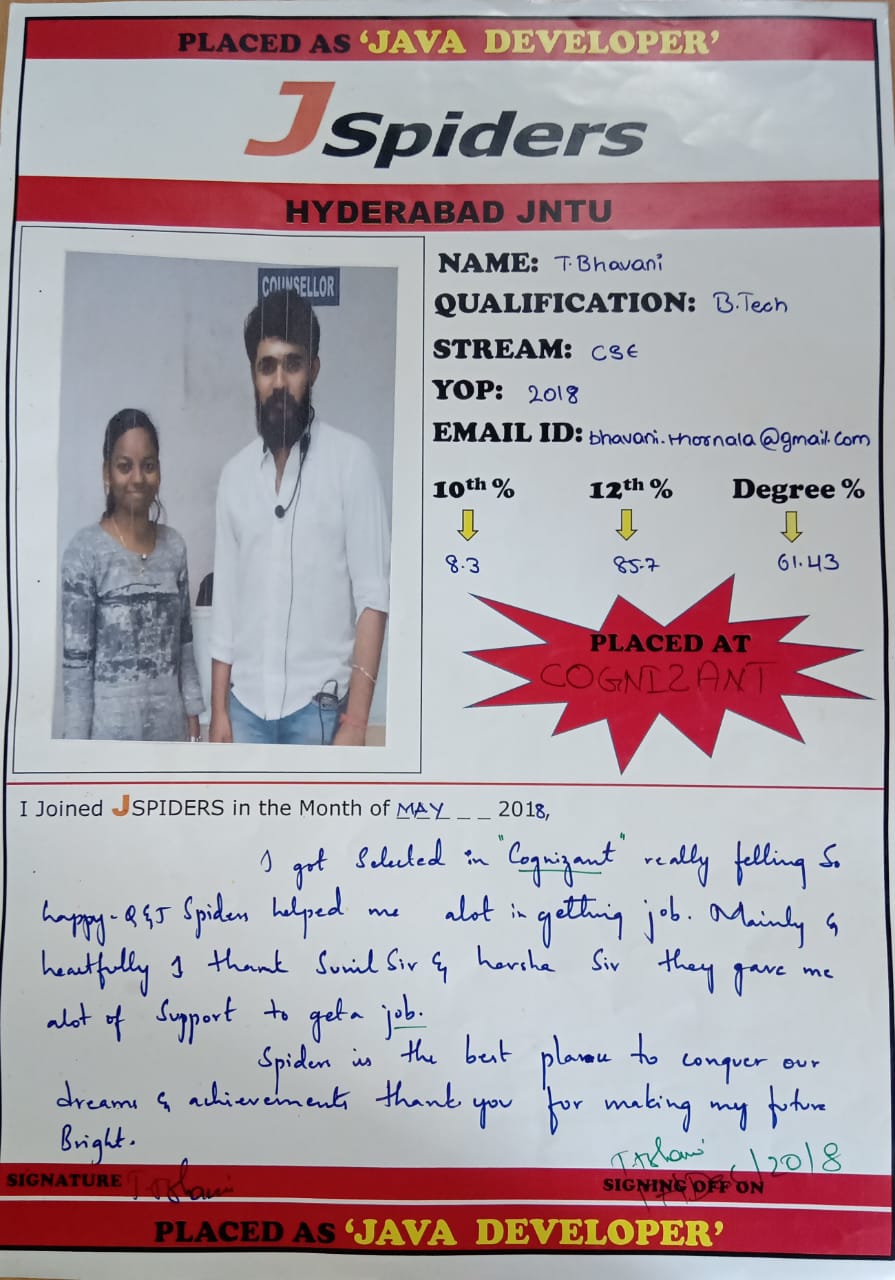 PLACED AS ‘JAVA DEVELOPER’
JSpiders
HYDERABAD JNTU
COUNSELLOR
NAME: T.Bhavani
QUALIFICATION: B.Tech
STREAM: CSE
YOP: 2018
EMAIL ID: bhavani.thornala@gmail.com
10th % 12th % Degree %
8.3 85.7 61.43
PLACED AT
COGNIZANT
I Joined JSPIDERS in the Month of MAY _ _ 2018,
I got Selected in "Cognizant" really felling So
happy- Q&J Spiders helped me alot in getting job. Mainly &
heartfully I thank Sunil Sir & harsha Sir they gave me
alot of Support to get a job.
Spiders is the best to conquer our
dreams & achievements thank you for making my future
Bright.
SIGNATURE
SIGNING OFF ON /2018
PLACED AS ‘JAVA DEVELOPER’